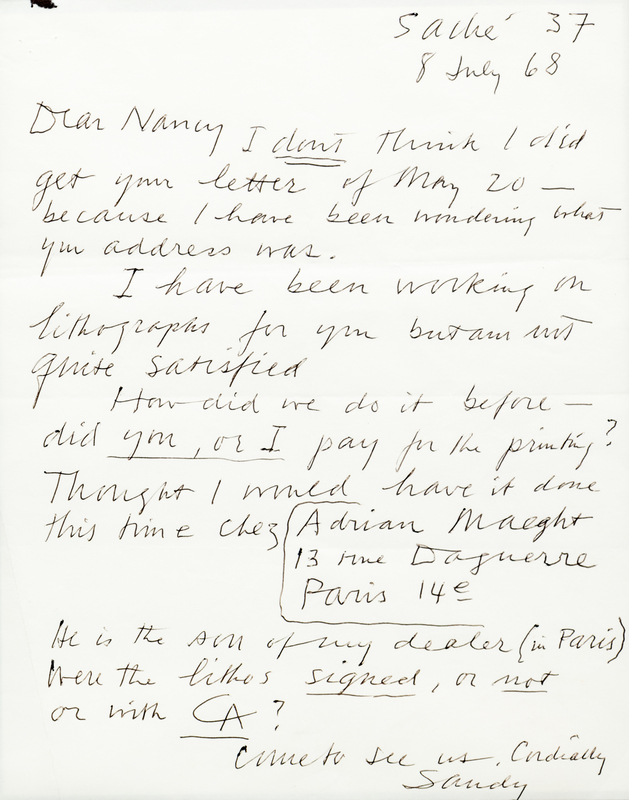 Saché 37
8 July 68
Dear Nancy I dont think I did
get your letter of May 20 —
because I have been wondering what
your address was.
I have been working on
lithographs for you but am not
quite satisfied
How did we do it before —
did you, or I pay for the printing?
Thought I would have it done
this time chez Adrian Maeght
13 rue Daguerre
Paris 14e
He is the son of my dealer (in Paris)
Were the lithos signed, or not
or with CA?
Come to see us. Cordially
Sandy